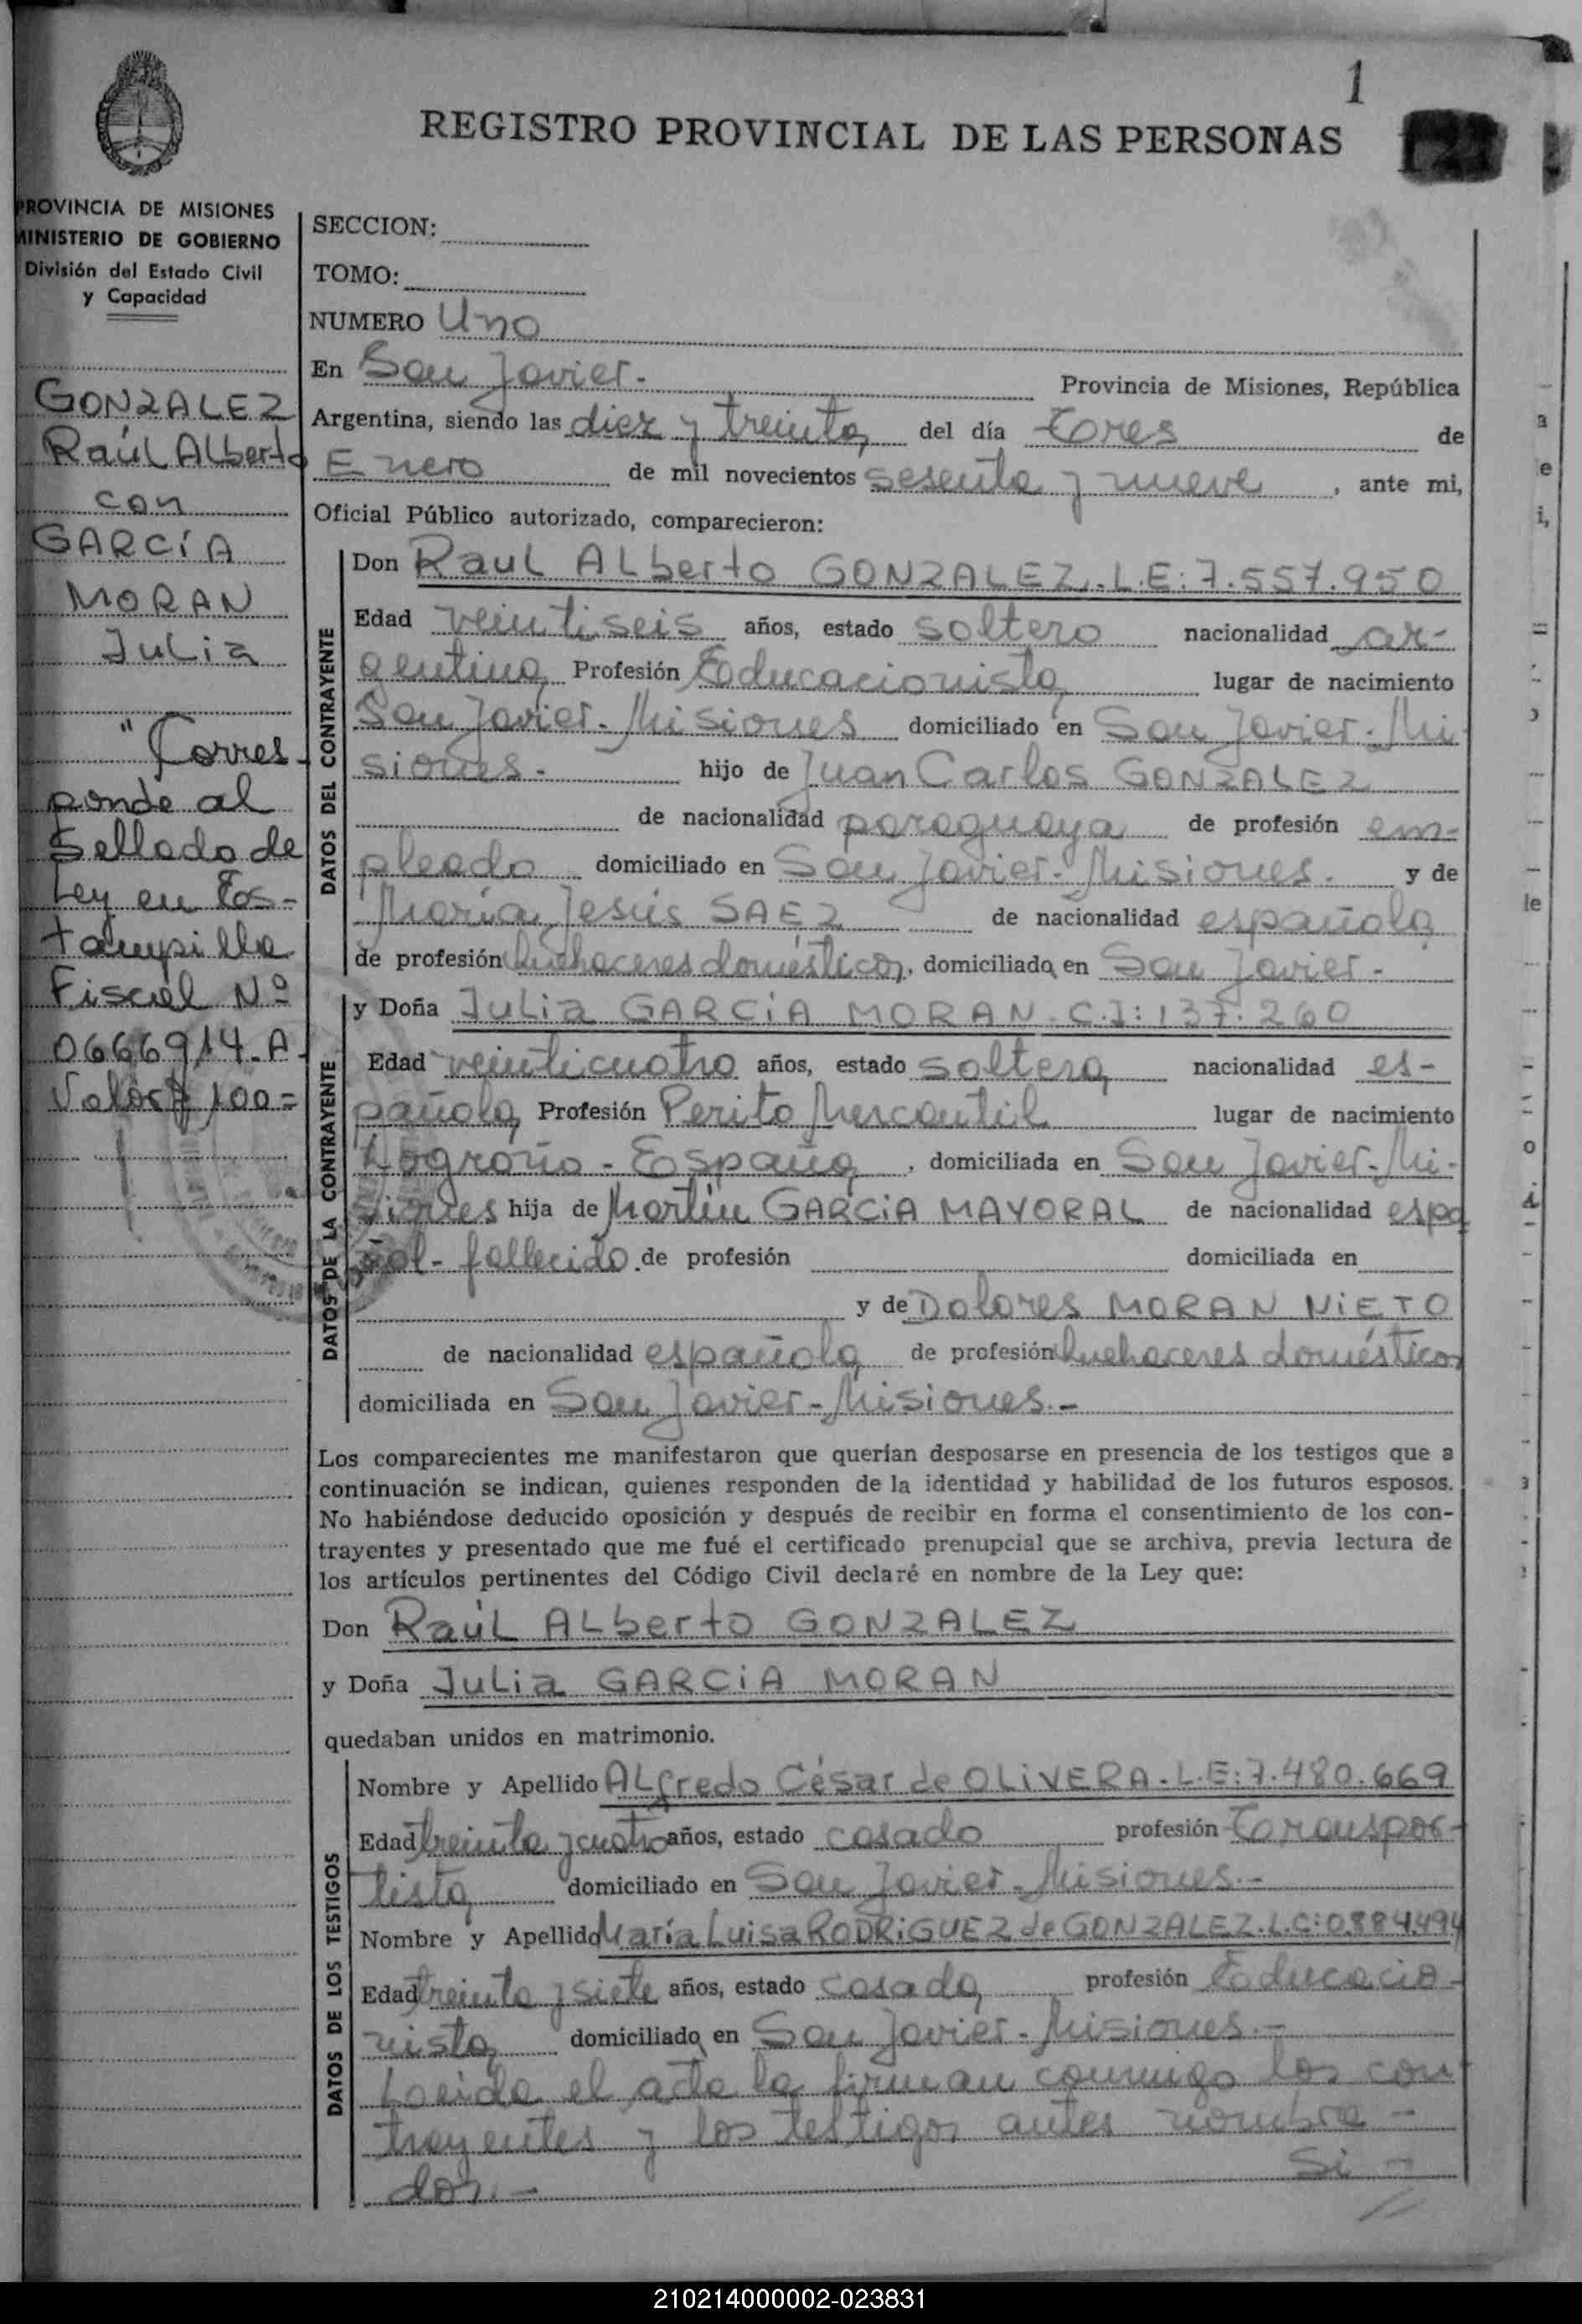 1
REGISTRO PROVINCIAL DE LAS PERSONAS
PROVINCIA DE MISIONES
MINISTERIO DE GOBIERNO
División del Estado Civil
y Capacidad
GONZALEZ
Raúl Alberto
con
GARCÍA
MORAN
Julia
"Corres-
ponde al
Sellado de
Ley en Es-
tampilla
Fiscal Nº
0666914-A-
Valor $ 100=
SECCION:
TOMO:
NUMERO Uno
En San Javier.- Provincia de Misiones, República
Argentina, siendo las diez y treinta del día Tres de
Enero de mil novecientos sesenta y nueve, ante mi,
Oficial Público autorizado, comparecieron:
DATOS DEL CONTRAYENTE
Don Raul Alberto GONZALEZ.L.E:7.557.950
Edad veintiseis años, estado soltero nacionalidad ar-
gentina Profesión Educacionista lugar de nacimiento
San Javier-Misiones domiciliado en San Javier-Mi
siones.- hijo de Juan Carlos GONZALEZ
de nacionalidad paraguaya de profesión em-
pleado domiciliado en San Javier-Misiones. y de
María Jesús SAEZ de nacionalidad española
de profesión quehaceres domésticos, domiciliada en San Javier-
DATOS DE LA CONTRAYENTE
y Doña Julia GARCIA MORAN.C.I:137.260
Edad veinticuatro años, estado soltera nacionalidad es-
pañola Profesión Perito Mercantil lugar de nacimiento
Logroño-España, domiciliada en San Javier-Mi-
siones hija de Martín GARCIA MAYORAL de nacionalidad espa
ñol-fallecido. de profesión domiciliada en
y de Dolores MORAN NIETO
de nacionalidad española de profesión quehaceres domésticos
domiciliada en San Javier-Misiones.-
Los comparecientes me manifestaron que querían desposarse en presencia de los testigos que a
continuación se indican, quienes responden de la identidad y habilidad de los futuros esposos.
No habiéndose deducido oposición y después de recibir en forma el consentimiento de los con-
trayentes y presentado que me fué el certificado prenupcial que se archiva, previa lectura de
los artículos pertinentes del Código Civil declaré en nombre de la Ley que:
Don Raúl Alberto GONZALEZ
y Doña Julia GARCIA MORAN
quedaban unidos en matrimonio.
DATOS DE LOS TESTIGOS
Nombre y Apellido Alfredo César de OLIVERA.L.E:7.480.669
Edad treinta y cuatro años, estado casado profesión Transpor-
tista domiciliado en San Javier-Misiones.-
Nombre y Apellido María Luisa RODRIGUEZ de GONZALEZ.L.C:0884494
Edad treinta y siete años, estado casada profesión Educacio-
nista domiciliada en San Javier-Misiones.-
Leida el acta la firman conmigo los con
trayentes y los testigos antes nombra-
dos.- Si-
210214000002-023831